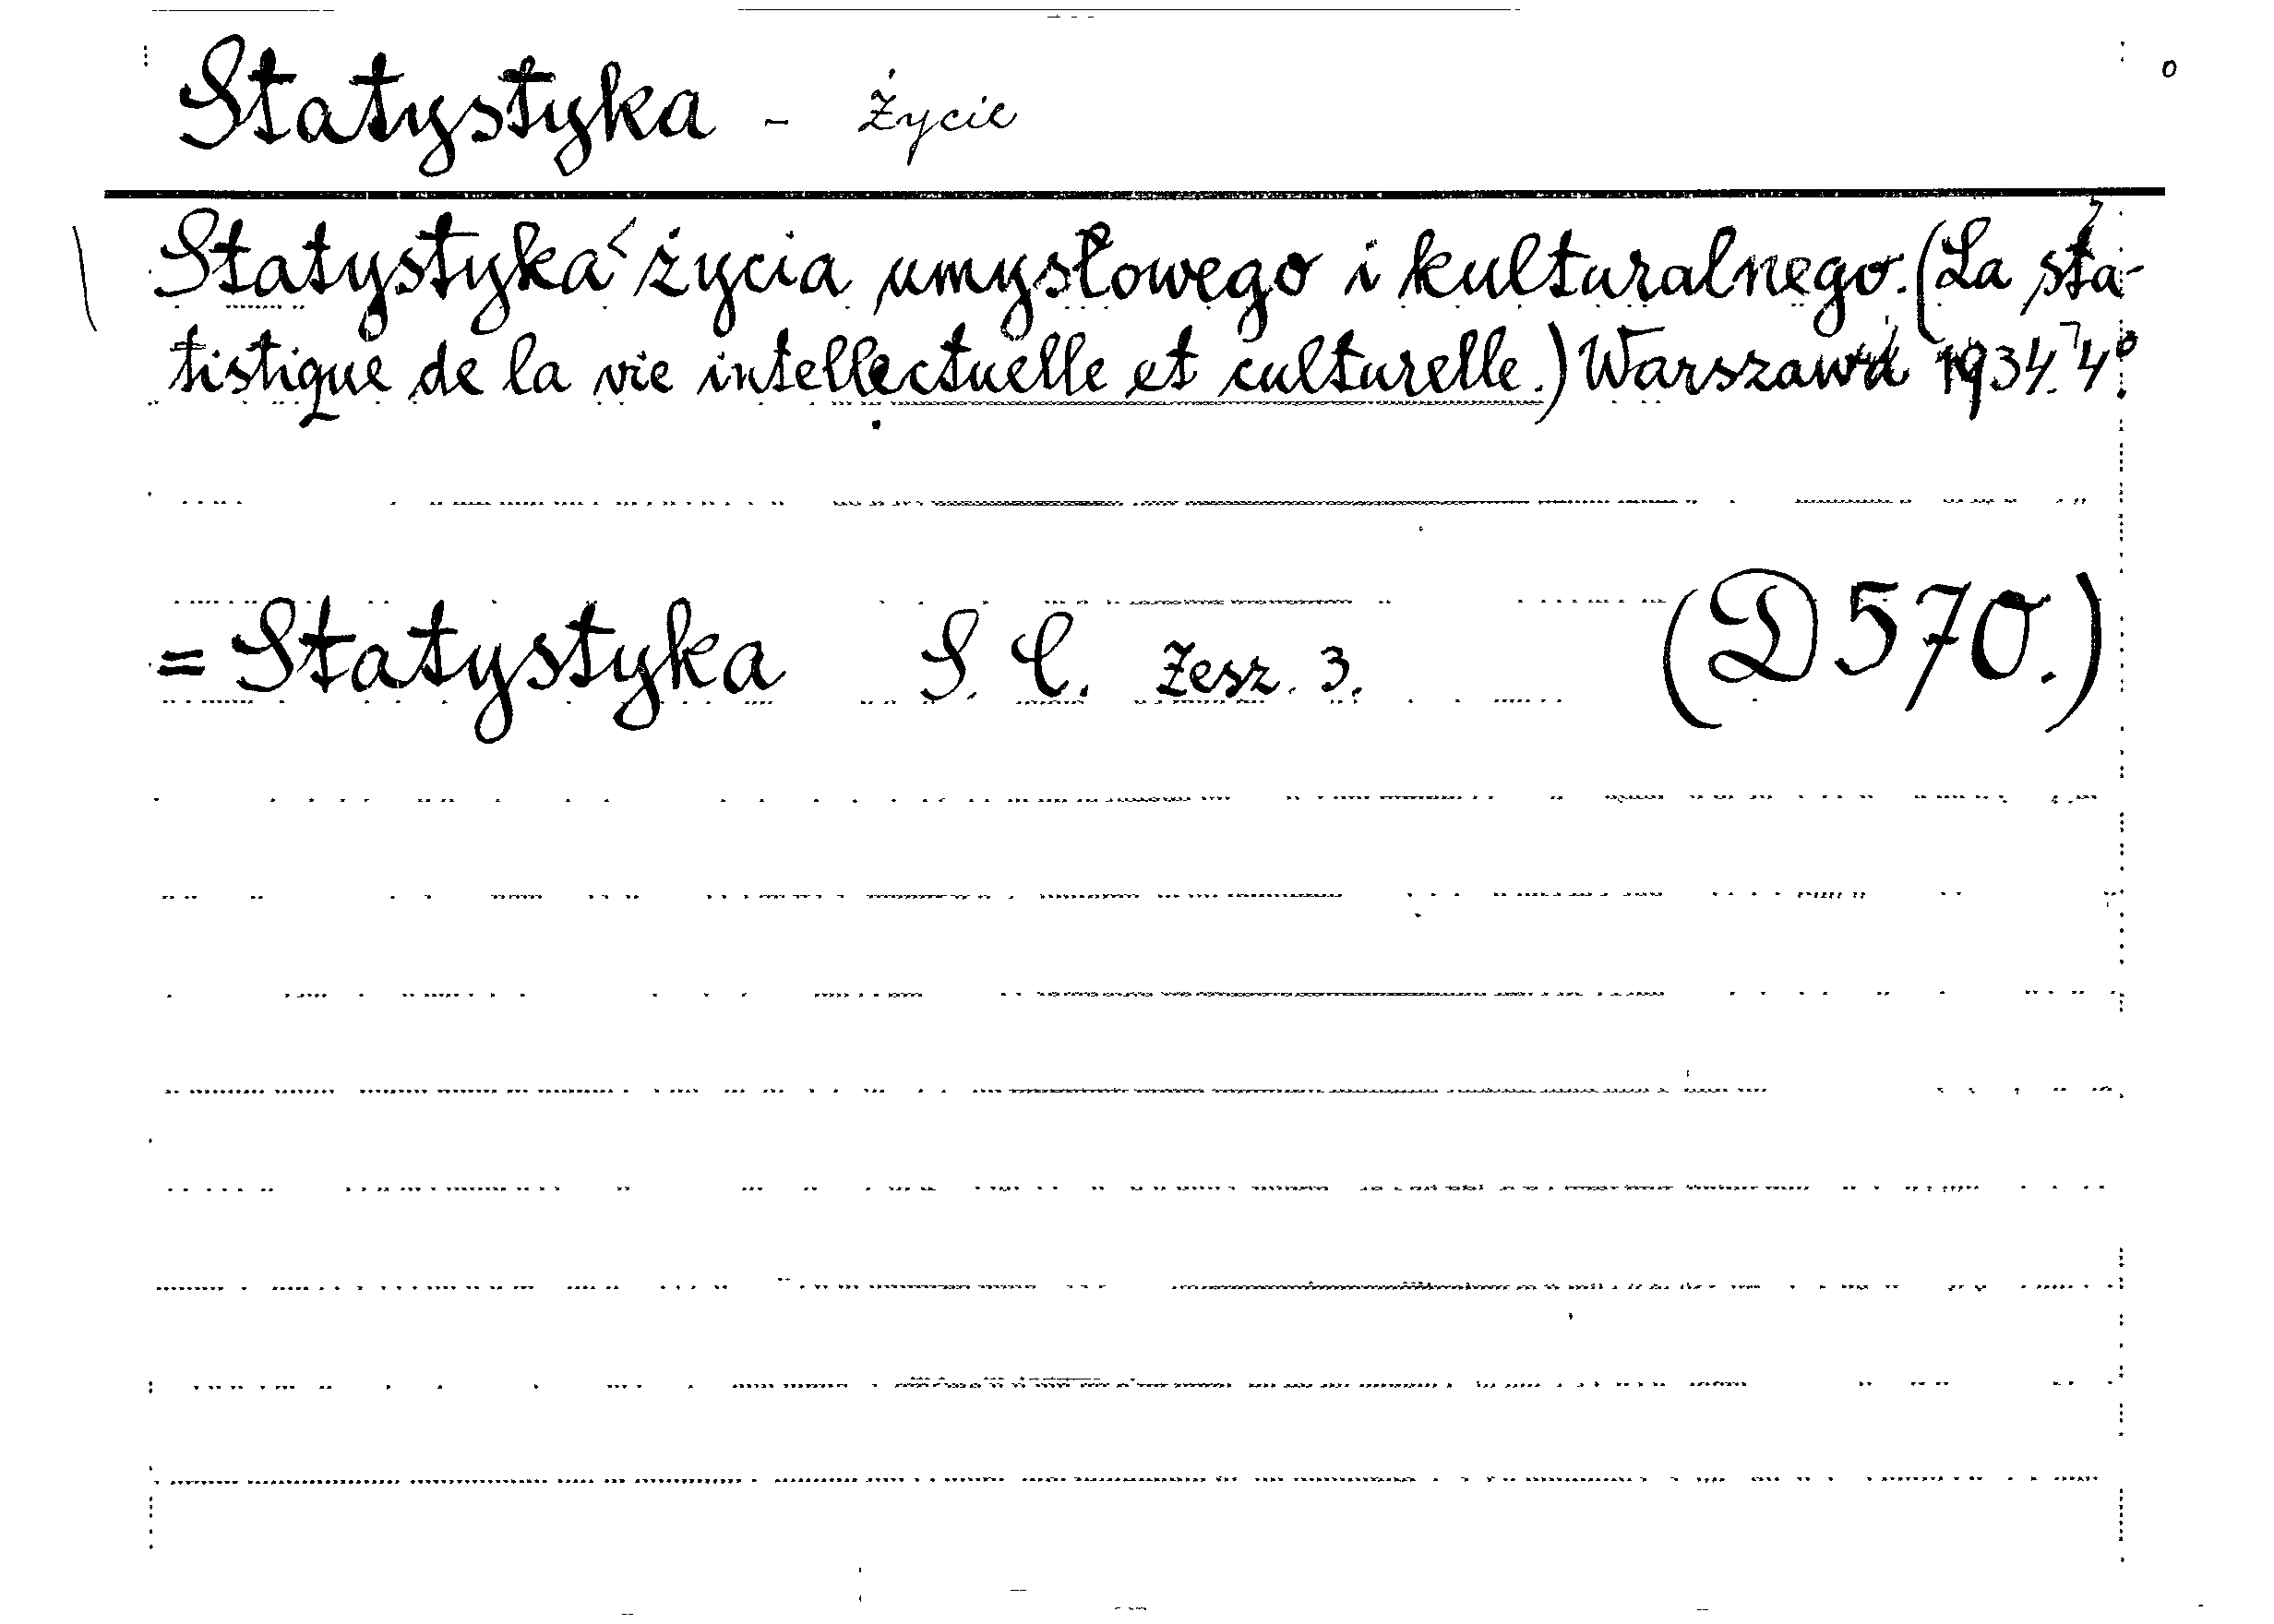 Statystyka - Życie
Statystyka życia umysłowego i kulturalnego. (La sta-
tistique de la vie intellectuelle et culturelle.) Warszawa 1934. 4º.
= Statystyka S. C. Zesz. 3. (D 570.)